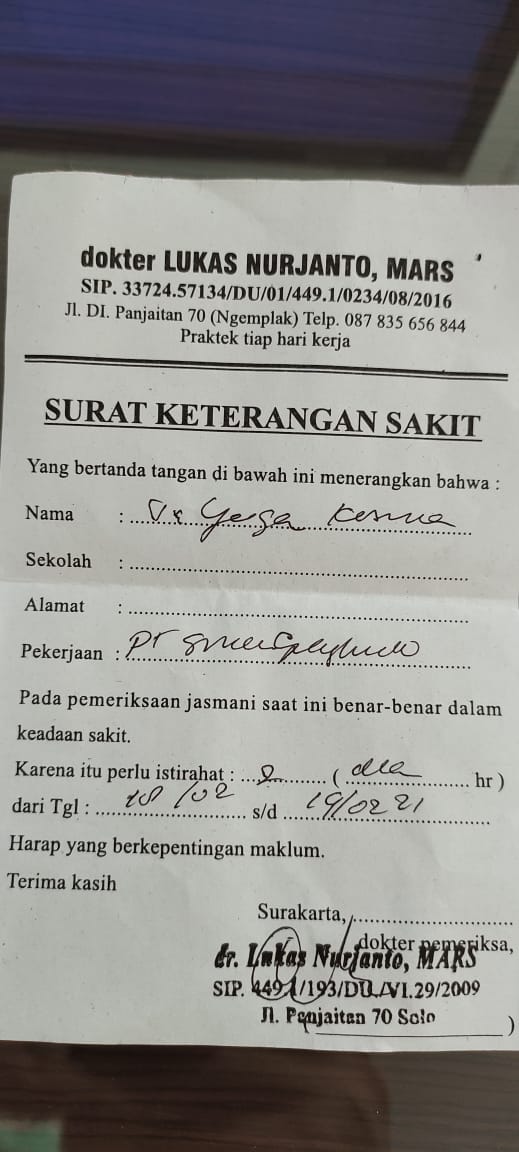 dokter LUKAS NURJANTO, MARS
SIP. 33724.57134/DU/01/449.1/0234/08/2016
Jl. DI. Panjaitan 70 (Ngemplak) Telp. 087 835 656 844
Praktek tiap hari kerja
SURAT KETERANGAN SAKIT
Yang bertanda tangan di bawah ini menerangkan bahwa :
Nama :
Sekolah :
Alamat :
Pekerjaan : PT
Pada pemeriksaan jasmani saat ini benar-benar dalam
keadaan sakit.
Karena itu perlu istirahat : 2 ( dua hr )
dari Tgl : 18/02 s/d 19/02 21
Harap yang berkepentingan maklum.
Terima kasih
Surakarta,
dokter pemeriksa,
dr. Lukas Nurjanto, MARS
SIP. 449.1/193/DU/VI.29/2009
Jl. Panjaitan 70 Solo
)